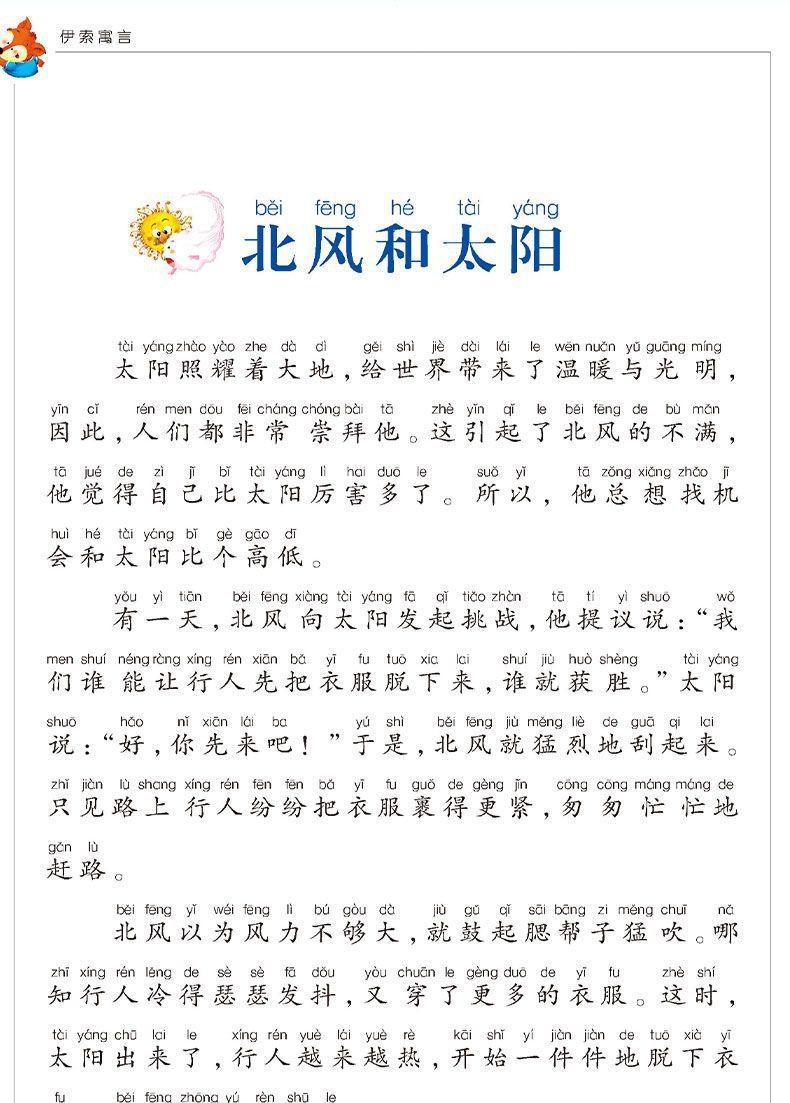 伊索寓言
běi fēng hé tài yáng
北风和太阳
tài yáng zhào yào zhe dà dì gěi shì jiè dài lái le wēn nuǎn yǔ guāng míng
太阳照耀着大地，给世界带来了温暖与光明，
yīn cǐ rén men dōu fēi cháng chóng bài tā zhè yǐn qǐ le běi fēng de bù mǎn
因此，人们都非常崇拜他。这引起了北风的不满，
tā jué de zì jǐ bǐ tài yáng lì hai duō le suǒ yǐ tā zǒng xiǎng zhǎo jī
他觉得自己比太阳厉害多了。所以，他总想找机
huì hé tài yáng bǐ gè gāo dī
会和太阳比个高低。
yǒu yì tiān běi fēng xiàng tài yáng fā qǐ tiǎo zhàn tā tí yì shuō wǒ
有一天，北风向太阳发起挑战，他提议说：“我
men shuí néng ràng xíng rén xiān bǎ yī fu tuō xia lai shuí jiù huò shèng tài yáng
们谁能让行人先把衣服脱下来，谁就获胜。”太阳
shuō hǎo nǐ xiān lái ba yú shì běi fēng jiù měng liè de guā qi lai
说：“好，你先来吧！”于是，北风就猛烈地刮起来。
zhǐ jiàn lù shang xíng rén fēn fēn bǎ yī fu guǒ de gèng jǐn cōng cōng máng máng de
只见路上行人纷纷把衣服裹得更紧，匆匆忙忙地
gǎn lù
赶路。
běi fēng yǐ wéi fēng lì bú gòu dà jiù gǔ qǐ sāi bāng zi měng chuī nǎ
北风以为风力不够大，就鼓起腮帮子猛吹。哪
zhī xíng rén lěng de sè sè fā dǒu yòu chuān le gèng duō de yī fu zhè shí
知行人冷得瑟瑟发抖，又穿了更多的衣服。这时，
tài yáng chū lai le xíng rén yuè lái yuè rè kāi shǐ yí jiàn jiàn de tuō xià yī
太阳出来了，行人越来越热，开始一件件地脱下衣
fu běi fēng zhōng yú rèn shū le